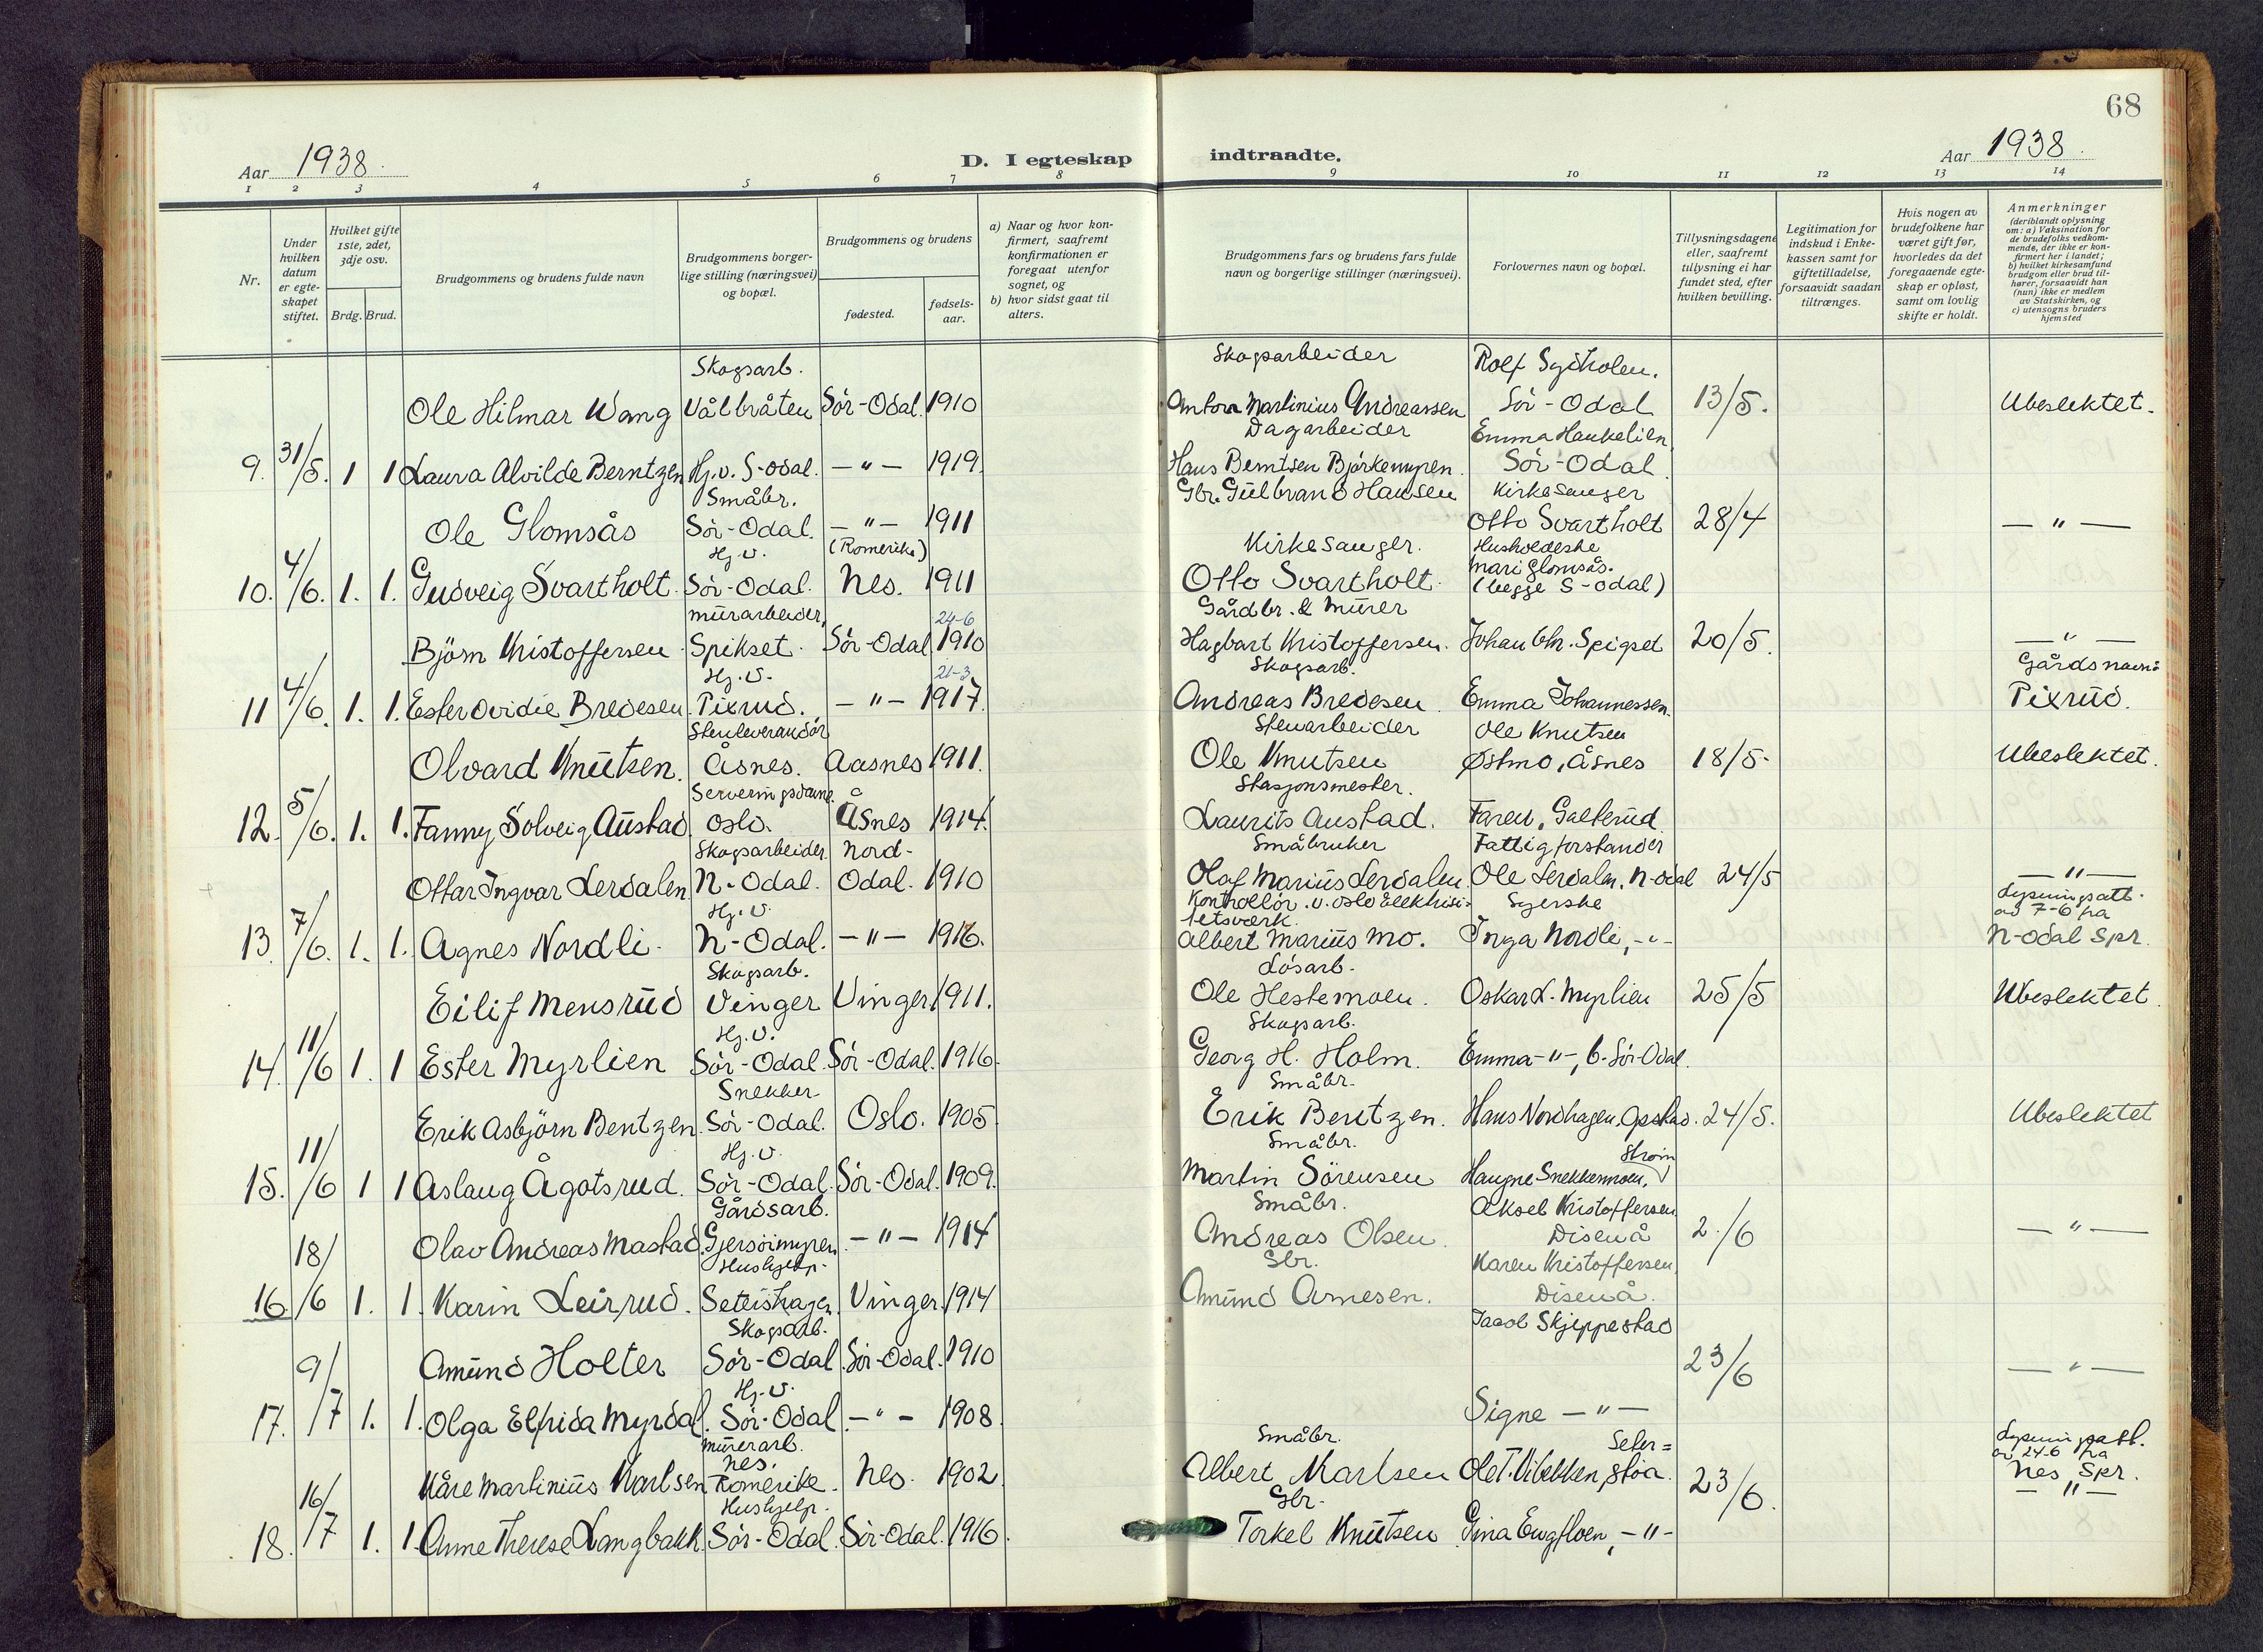 68
Aar 1938.
D. I egteskap
indtraadte.
Aar 1938.
1 2 3 4 5 6 7 8 9 10 11 12 13 14
Nr.
Under hvilken datum er egteskapet stiftet.
Hvilket gifte 1ste, 2det, 3dje osv.
Brdg. Brud.
Brudgommens og brudens fulde navn
Brudgommens borgerlige stilling (næringsvei) og bopæl.
Brudgommens og brudens
fødested.
fødselsaar.
a) Naar og hvor konfirmert, saafremt konfirmationen er foregaat utenfor sognet, og
b) hvor sidst gaat til alters.
Brudgommens fars og brudens fars fulde navn og borgerlige stillinger (næringsvei).
Forlovernes navn og bopæl.
Tillysningsdagene eller, saafremt tillysning ei har fundet sted, efter hvilken bevilling.
Legitimation for indskud i Enkekassen samt for giftetilladelse, forsaavidt saadan tiltrænges.
Hvis nogen av brudefolkene har været gift før, hvorledes da det foregaaende egteskap er opløst, samt om lovlig skifte er holdt.
Anmerkninger
(deriblandt oplysning om: a) Vaksination for de brudefolks vedkommende, der ikke er konfirmert her i landet;
b) hvilket kirkesamfund brudgom eller brud tilhører, forsaavidt han (hun) ikke er medlem av Statskirken, og
c) utensogns bruders hjemsted
Skogsarb. Skogsarbeider Rolf
Ole Hilmar Wang Vålbråten Sör-Odal. 1910 Anton Martinius Andreassen Sör-Odal 13/5. Ubeslektet.
Dagarbeider Emma Haukelien
9. 31/5. 1 1 Laura Alvilde Berntzen Hj.v. S-Odal. -"- 1919. Hans Berntsen Björkemyren. Sör-Odal
Småbr. Gbr. Gulbrand Hansen Kirkesanger
Ole Glomsås Sör-Odal. -"- 1911 Otto Svartholt 28/4 -"-
Hj.v. (Romerike) Kirkesanger. Husholderske Mari Glomsås.
10. 4/6. 1. 1. Gudveig Svartholt. Sör-Odal. Nes. 1911 Otto Svartholt. (begge S-Odal)
Murarbeider, 24-6 Gårdbr. & Murer
Björn Kristoffersen. Spikset. Sör-Odal 1910 Hagbart Kristoffersen. Johan Chr. Spigset 20/5. -"-
Hj.v. 21-3 Skogsarb. Gårdsnavn:
11 4/6. 1. 1. Ester Ovidie Bredesen. Pixrud. -"- 1917. Andreas Bredesen. Emma Johannessen. Pixrud.
Stenleverandör Stenarbeider Ole Knutsen
Olvard Knutsen. Åsnes. Aasnes 1911. Ole Knutsen Østmo, Åsnes 18/5. Ubeslektet.
Serveringsdame. Stasjonsmester.
12. 5/6. 1. 1. Fanny Solveig Austad. Oslo. Åsnes 1914. Laurits Austad. Faren, Galterud.
Skogsarbeider. Nord- Småbruker Fattigforstander
Ottar Ingvar Lerdalen. N-Odal. Odal. 1910 Olaf Marius Lerdalen. Ole Lerdalen. N-Odal 24/5 -"-
Hj.v. Kontrollör. v. Oslo Elektrisi=tetsværk. Syerske Lysningsatt. av 7-6 fra
13. 7/6. 1. 1. Agnes Nordli. N-Odal. -"- 1916. Albert Marius Mo. Inga Nordli, -"- N-Odal Spr.
Skogsarb. Lösarb.
Eilif Mensrud Vinger Vinger 1911. Ole Hestemoen. Oskar L. Myrlien 25/5 Ubeslektet.
Hj.v. Skogsarb.
14. 11/6 1. 1 Ester Myrlien Sör-Odal. Sör-Odal. 1916. Georg H. Holm. Emma -"-, b. Sör-Odal.
Snekker Småbr.
Erik Asbjörn Bentzen. Sör-Odal. Oslo. 1905 Erik Bentzen. Hans Nordhagen, Opstad. 24/5. Ubeslektet
Hj.v. Småbr. Ström
15. 11/6 1 1 Aslaug Ågotsrud. Sör-Odal. Sör-Odal. 1909. Martin Sörensen Haugne Snekkermoen,
Gårdsarb. Småbr. Aksel Kristoffersen
Olav Andreas Mastad. Gjersöimyren. -"- 1914 Andreas Olsen. Disenå 2./6 -"-
Hushjelp. Gbr. Karen Kristoffersen,
16. 18/6 1. 1. Karin Leirrud. Vinger. 1914 Amund Arnesen. Disenå.
Skogsarb. Jacob Skjeppestad
Amund Holter Sör-Odal. Sör-Odal. 1910 23/6 -"-
Hj.v.
17. 9/7 1. 1. Olga Elfrida Myrdal. Sör-Odal -"- 1908. Signe -"-
Murerarb. Nes, Småbr. Seter= Lysningsatt. av 24-6 fra
Kåre Martinius Karlsen Romerike. Nes. 1902 Albert Karlsen Ole T. Vibekken, stöa. 23/6. Nes Spr.
Hushjelp. Gbr. -"-
18. 16/7 1. 1. Anne Therese Langbakk. Sör-Odal. Sör-Odal. 1916. Torkel Knutsen Gina Engfloen, -"-